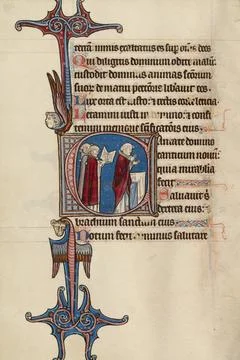 terram nimis exaltatus es sup om̄s deos
Qui diligitis dominum odite malū:
custodit dominus animas scōrum
suor de manu peccōris liberabit eos.
Lux orta est iusto: et rectis corde letitia
Letamini iusti in domino: et confi
temini memorie sc̄ificatōis eius.
Cantate domino
canticum nouū:
quia mirabilia
fecit
Saluauit s
dextera eius:
brachium sanctum eius
Notum fecit dominus salutare